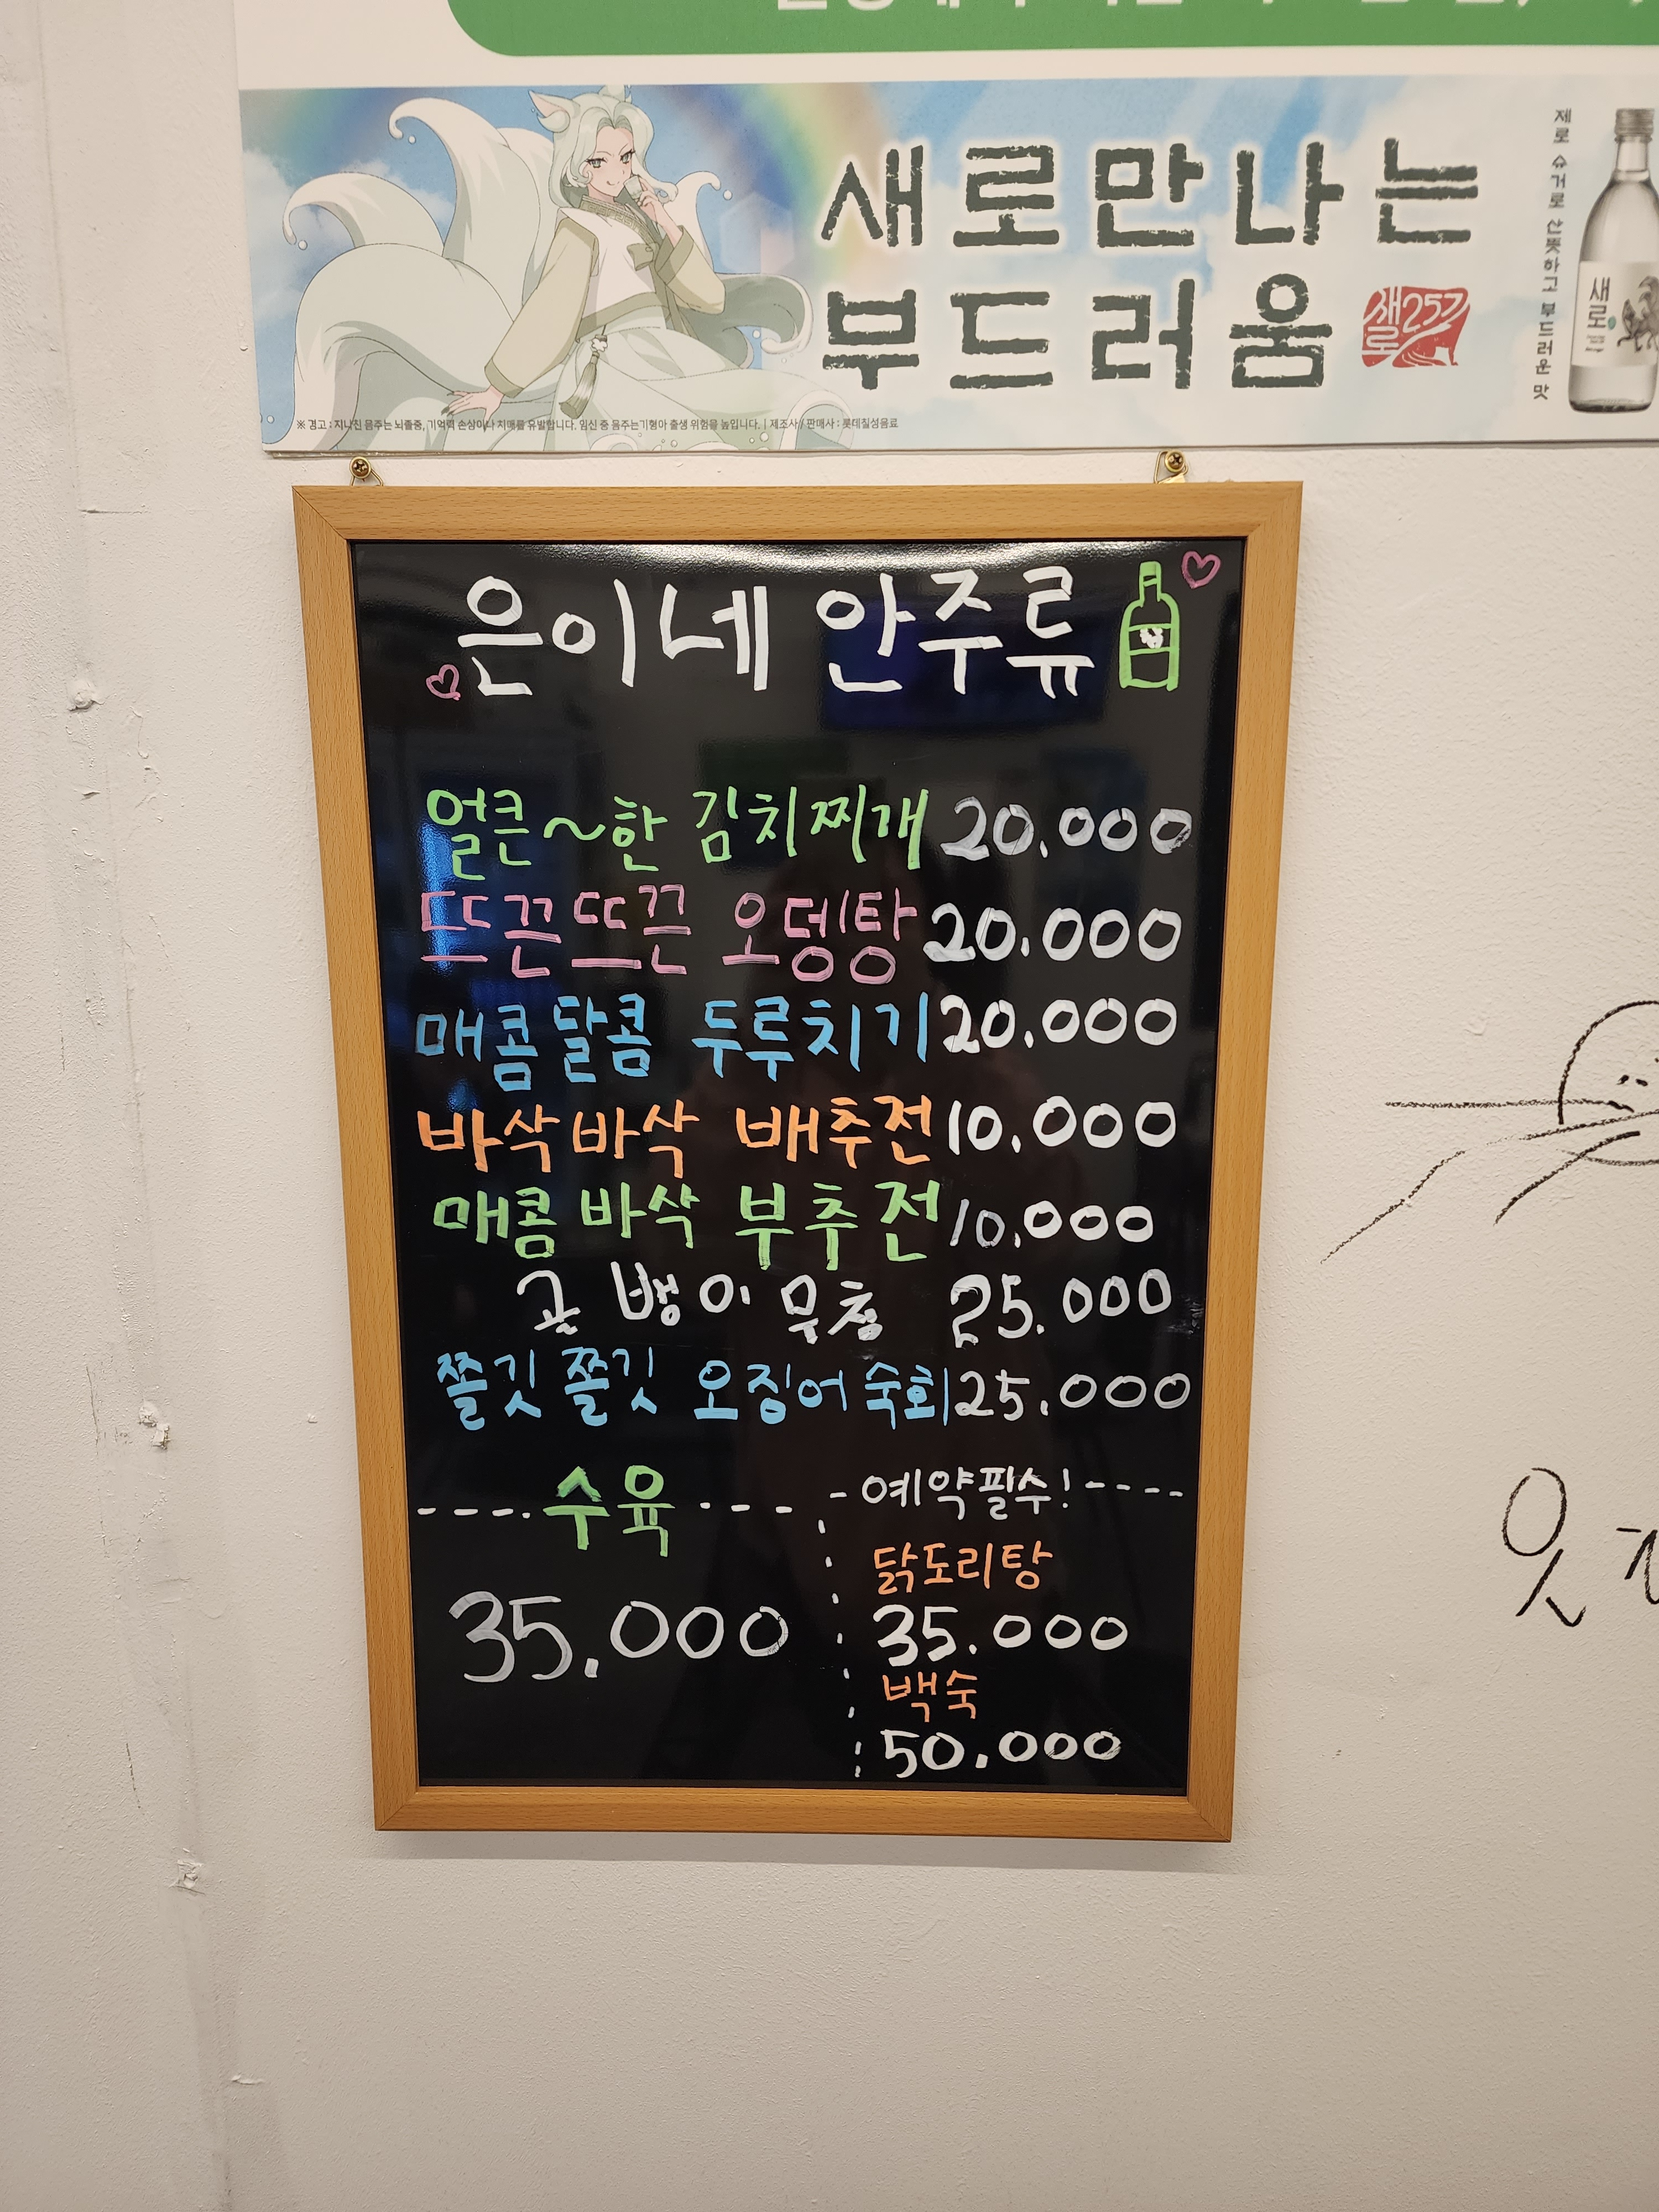 새로만나는
부드러움
새로 257
제로 슈거로 산뜻하고 부드러운 맛
새로
※ 경고 : 지나친 음주는 뇌졸중, 기억력 손상이나 치매를 유발합니다. 임신 중 음주는 기형아 출생 위험을 높입니다. | 제조사 / 판매사 : 롯데칠성음료
은이네 안주류
얼큰~한 김치찌개 20.000
뜨끈뜨끈 오뎅탕 20.000
매콤달콤 두루치기 20.000
바삭바삭 배추전 10.000
매콤바삭 부추전 10.000
골뱅이무침 25.000
쫄깃쫄깃 오징어숙회 25.000
수육
35.000
예약필수!
닭도리탕
35.000
백숙
50.000